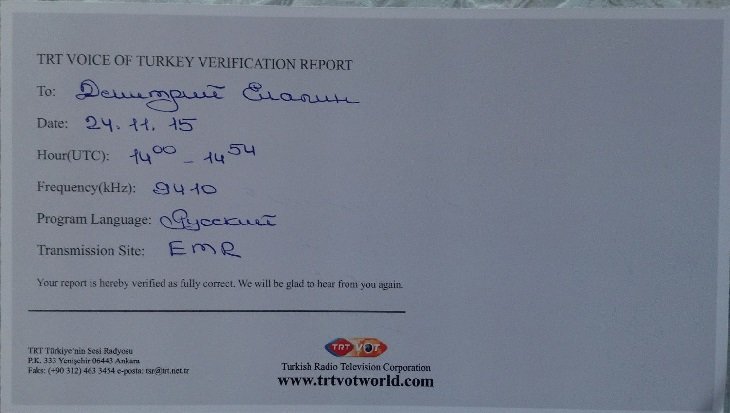 TRT VOICE OF TURKEY VERIFICATION REPORT
To: Дмитрий Елагин
Date: 24.11.15
Hour(UTC): 14⁰⁰ – 14⁵⁴
Frequency(kHz): 9410
Program Language: Русский
Transmission Site: EMR
Your report is hereby verified as fully correct. We will be glad to hear from you again.
TRT Türkiye'nin Sesi Radyosu
P.K. 333 Yenişehir 06443 Ankara
Faks: (+90 312) 463 3454 e-posta: tsr@trt.net.tr
TRT VOT
Turkish Radio Television Corporation
www.trtvotworld.com